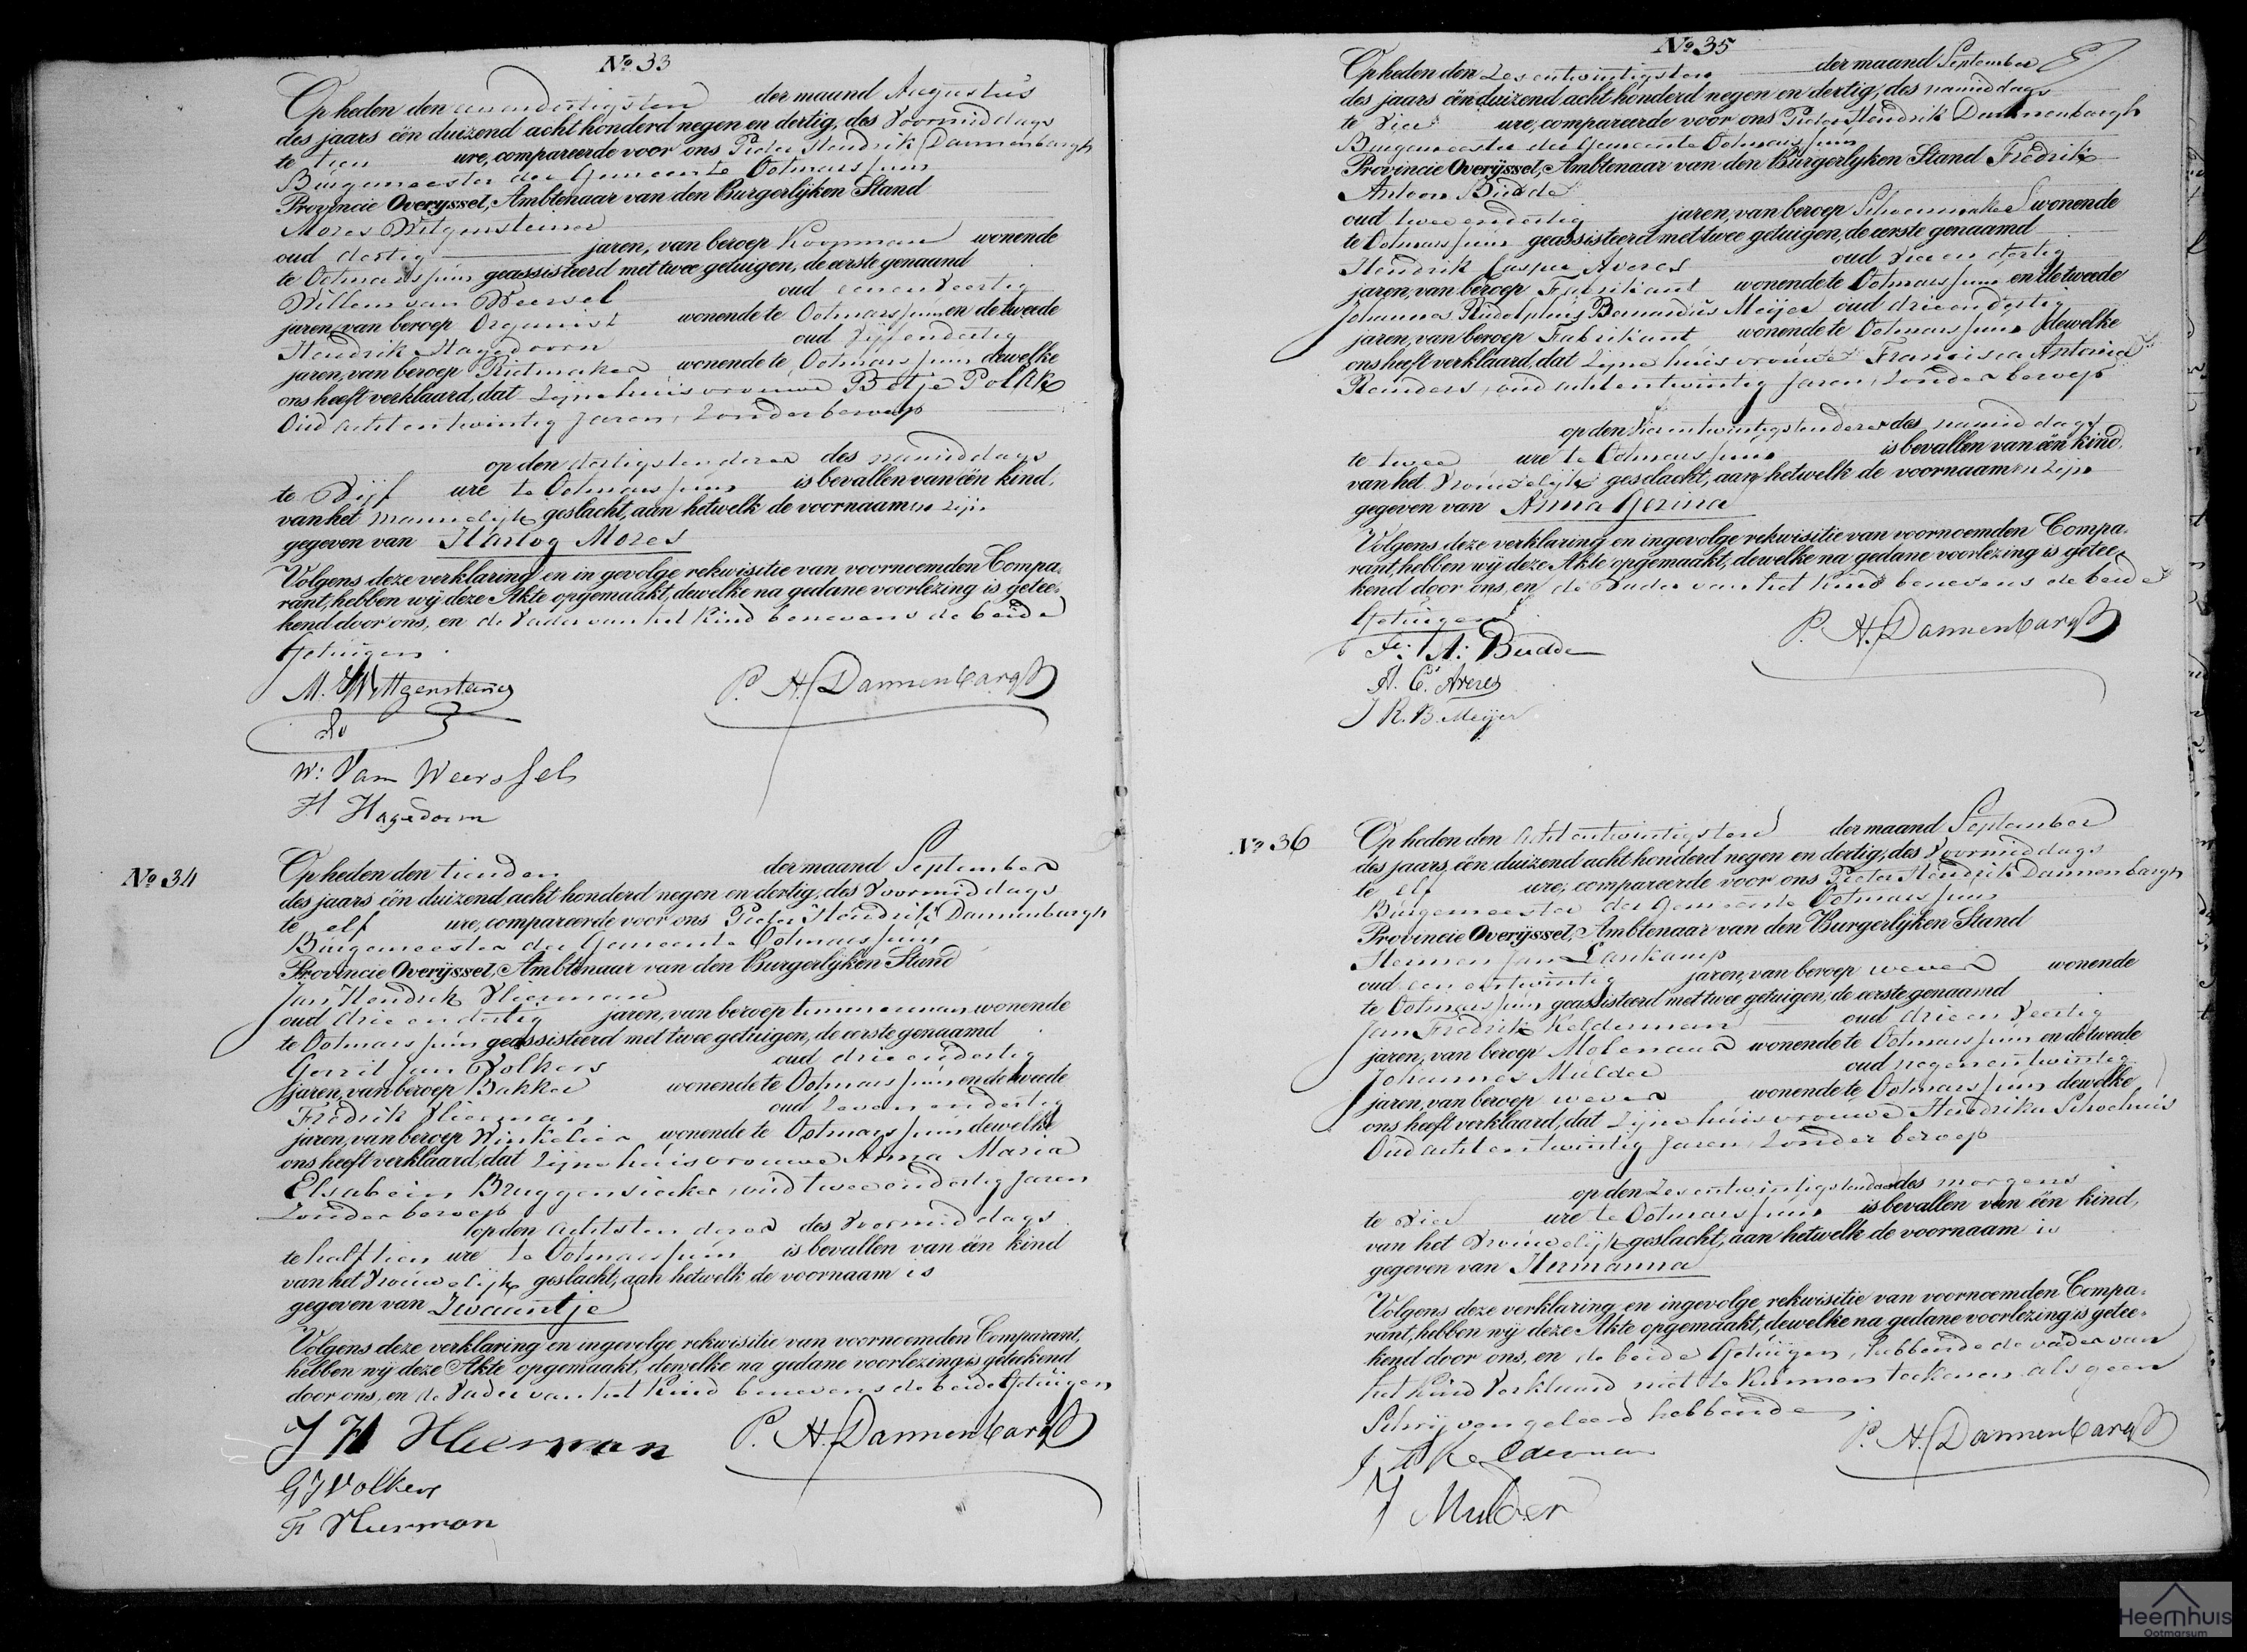 № 33
Op heden den eenendertigsten der maand Augustus
des jaars één duizend acht honderd negen en dertig, des Voormiddags
te tien ure, compareerde voor ons Pieter Hendrik Dannenbargh
Burgemeester der Gemeente Ootmarssum
Provincie Overijssel, Ambtenaar van den Burgerlijken Stand
Mozes Witgensteiner
oud dertig jaren, van beroep Koopman wonende
te Ootmarssum geassisteerd met twee getuigen, de eerste genaamd
Willem van Weersel oud eenenveertig
jaren, van beroep Organist wonende te Ootmarssum en de tweede
Hendrik Hagedoorn oud Vijfendertig
jaren, van beroep Rietmaker wonende te Ootmarssum dewelke
ons heeft verklaard, dat zijne huisvrouwe Betje Polak
Oud achtentwintig Jaren, zonder beroep
op den dertigsten dezer des namiddags
te Vijf ure te Ootmarssum is bevallen van één kind,
van het Mannelijk geslacht, aan hetwelk de voornaamen zijn
gegeven van Hartog Mozes
Volgens deze verklaring en in gevolge rekwisitie van voornoemden Compa-
rant, hebben wij deze Akte opgemaakt, dewelke na gedane voorlezing is getee-
kend door ons, en de Vader van het Kind benevens de beide
Getuigen.
M. Wittgensteiner
P. H. Dannenbargh
W: Van Weerssel
H Hagedoorn
№ 34
Op heden den tienden der maand September
des jaars één duizend acht honderd negen en dertig, des Voormiddags
te elf ure, compareerde voor ons Pieter Hendrik Dannenbargh
Burgemeester der Gemeente Ootmarssum
Provincie Overijssel, Ambtenaar van den Burgerlijken Stand
Jan Hendrik Vlierman
oud drie en dertig jaren, van beroep timmerman wonende
te Ootmarssum geassisteerd met twee getuigen, de eerste genaamd
Gerrit Jan Volkers oud drie en dertig
jaren, van beroep Bakker wonende te Ootmarssum en de tweede
Fredrik Vlierman oud Zeven en dertig
jaren, van beroep Winkelier wonende te Ootmarssum dewelke
ons heeft verklaard, dat zijne huisvrouwe Anna Maria
Elsabein Bruggensieker, oud twee en dertig Jaren
Zonder beroep
op den achtsten dezer des Voormiddags
te half tien ure te Ootmarssum is bevallen van één kind
van het Vrouwelijk geslacht, aan hetwelk de voornaam is
gegeven van Zwaantje
Volgens deze verklaring en ingevolge rekwisitie van voornoemden Comparant,
hebben wij deze Akte opgemaakt, dewelke na gedane voorlezing is geteekend
door ons, en de Vader van het Kind benevens de beide Getuigen
J H Vlierman
P. H. Dannenbargh
G J Volkers
F Vlierman
№ 35
Op heden den Zesentwintigsten der maand September
des jaars één duizend acht honderd negen en dertig, des namiddags
te Vier ure, compareerde voor ons Pieter Hendrik Dannenbargh
Burgemeester der Gemeente Ootmarssum
Provincie Overijssel, Ambtenaar van den Burgerlijken Stand Fredrik
Antoon Budde
oud twee en dertig jaren, van beroep Schoenmaker wonende
te Ootmarssum geassisteerd met twee getuigen, de eerste genaamd
Hendrik Casper Averes oud Vier en dertig
jaren, van beroep Fabrikant wonende te Ootmarssum en de tweede
Johannes Rudolphus Bernardus Meijer oud drie en dertig
jaren, van beroep Fabrikant wonende te Ootmarssum dewelke
ons heeft verklaard, dat zijne huisvrouwe Francisca Antonia
Reinders, oud achtentwintig Jaren, Zonder beroep
op den Vierentwintigsten dezer des namiddags
te twee ure te Ootmarssum is bevallen van één kind,
van het Vrouwelijk geslacht, aan hetwelk de voornaamen zijn
gegeven van Anna Gezina
Volgens deze verklaring en ingevolge rekwisitie van voornoemden Compa-
rant, hebben wij deze Akte opgemaakt, dewelke na gedane voorlezing is getee-
kend door ons, en de Vader van het Kind benevens de beide
Getuigen
F: A: Budde
P. H. Dannenbargh
H. C. Averes
J R. B. Meijer
№ 36
Op heden den achtentwintigsten der maand September
des jaars één duizend acht honderd negen en dertig, des Voormiddags
te elf ure, compareerde voor ons Pieter Hendrik Dannenbargh
Burgemeester der Gemeente Ootmarssum
Provincie Overijssel, Ambtenaar van den Burgerlijken Stand
Hermen Jan Lankamp
oud een entwintig jaren, van beroep wever wonende
te Ootmarssum geassisteerd met twee getuigen, de eerste genaamd
Jan Fredrik Kelderman oud drie en Veertig
jaren, van beroep Molenaar wonende te Ootmarssum en de tweede
Johannes Mulder oud negenentwintig
jaren, van beroep wever wonende te Ootmarssum dewelke
ons heeft verklaard, dat zijne huisvrouwe Hendrika Scholhuis
Oud achtentwintig Jaren, Zonder beroep
op den Zesentwintigsten dezer des morgens
te Vier ure te Ootmarssum is bevallen van één kind,
van het Vrouwelijk geslacht, aan hetwelk de voornaam is
gegeven van Hermanna
Volgens deze verklaring en ingevolge rekwisitie van voornoemden Compa-
rant, hebben wij deze Akte opgemaakt, dewelke na gedane voorlezing is getee-
kend door ons, en de beide Getuigen, hebbende de vader van
het Kind Verklaard niet te Kunnen teekenen als geen
Schrijven geleerd hebbende
P. H. Dannenbargh
J F Kelderman
J Mulder
Heemhuis
Ootmarsum